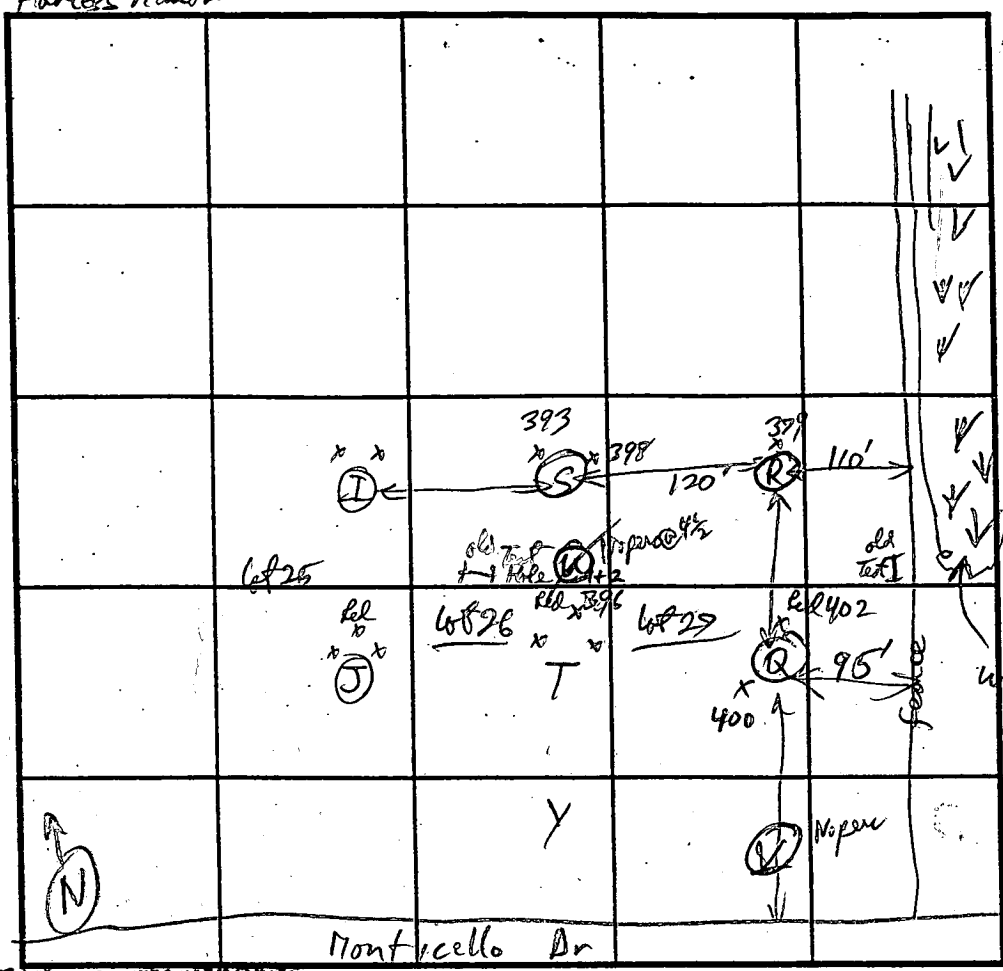 393
398
379
I
S
120'
R
110'
old Test
Hole
U
No perc @ 4 1/2
old
Test I
Lot 25
Rel
Rel 396
Rel 402
Lot 26
Lot 27
J
T
Q
95'
400
fence
Y
V
No perc
N
Monticello Dr